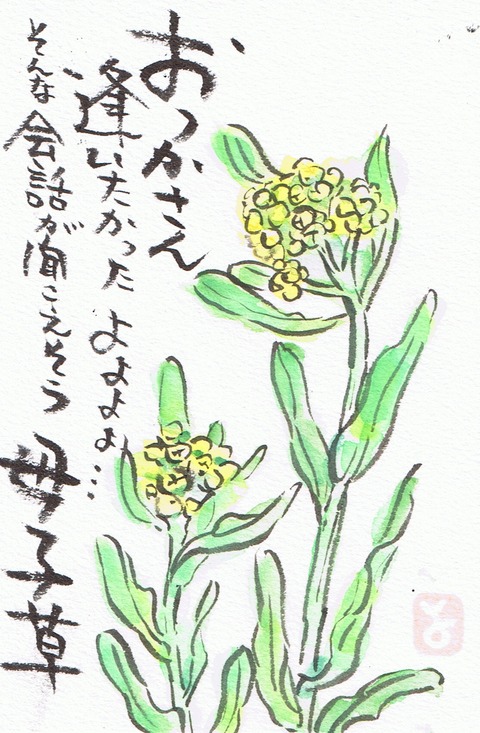 おっかさん
逢いたかったよよよよ…
そんな会話が聞こえそう
母子草